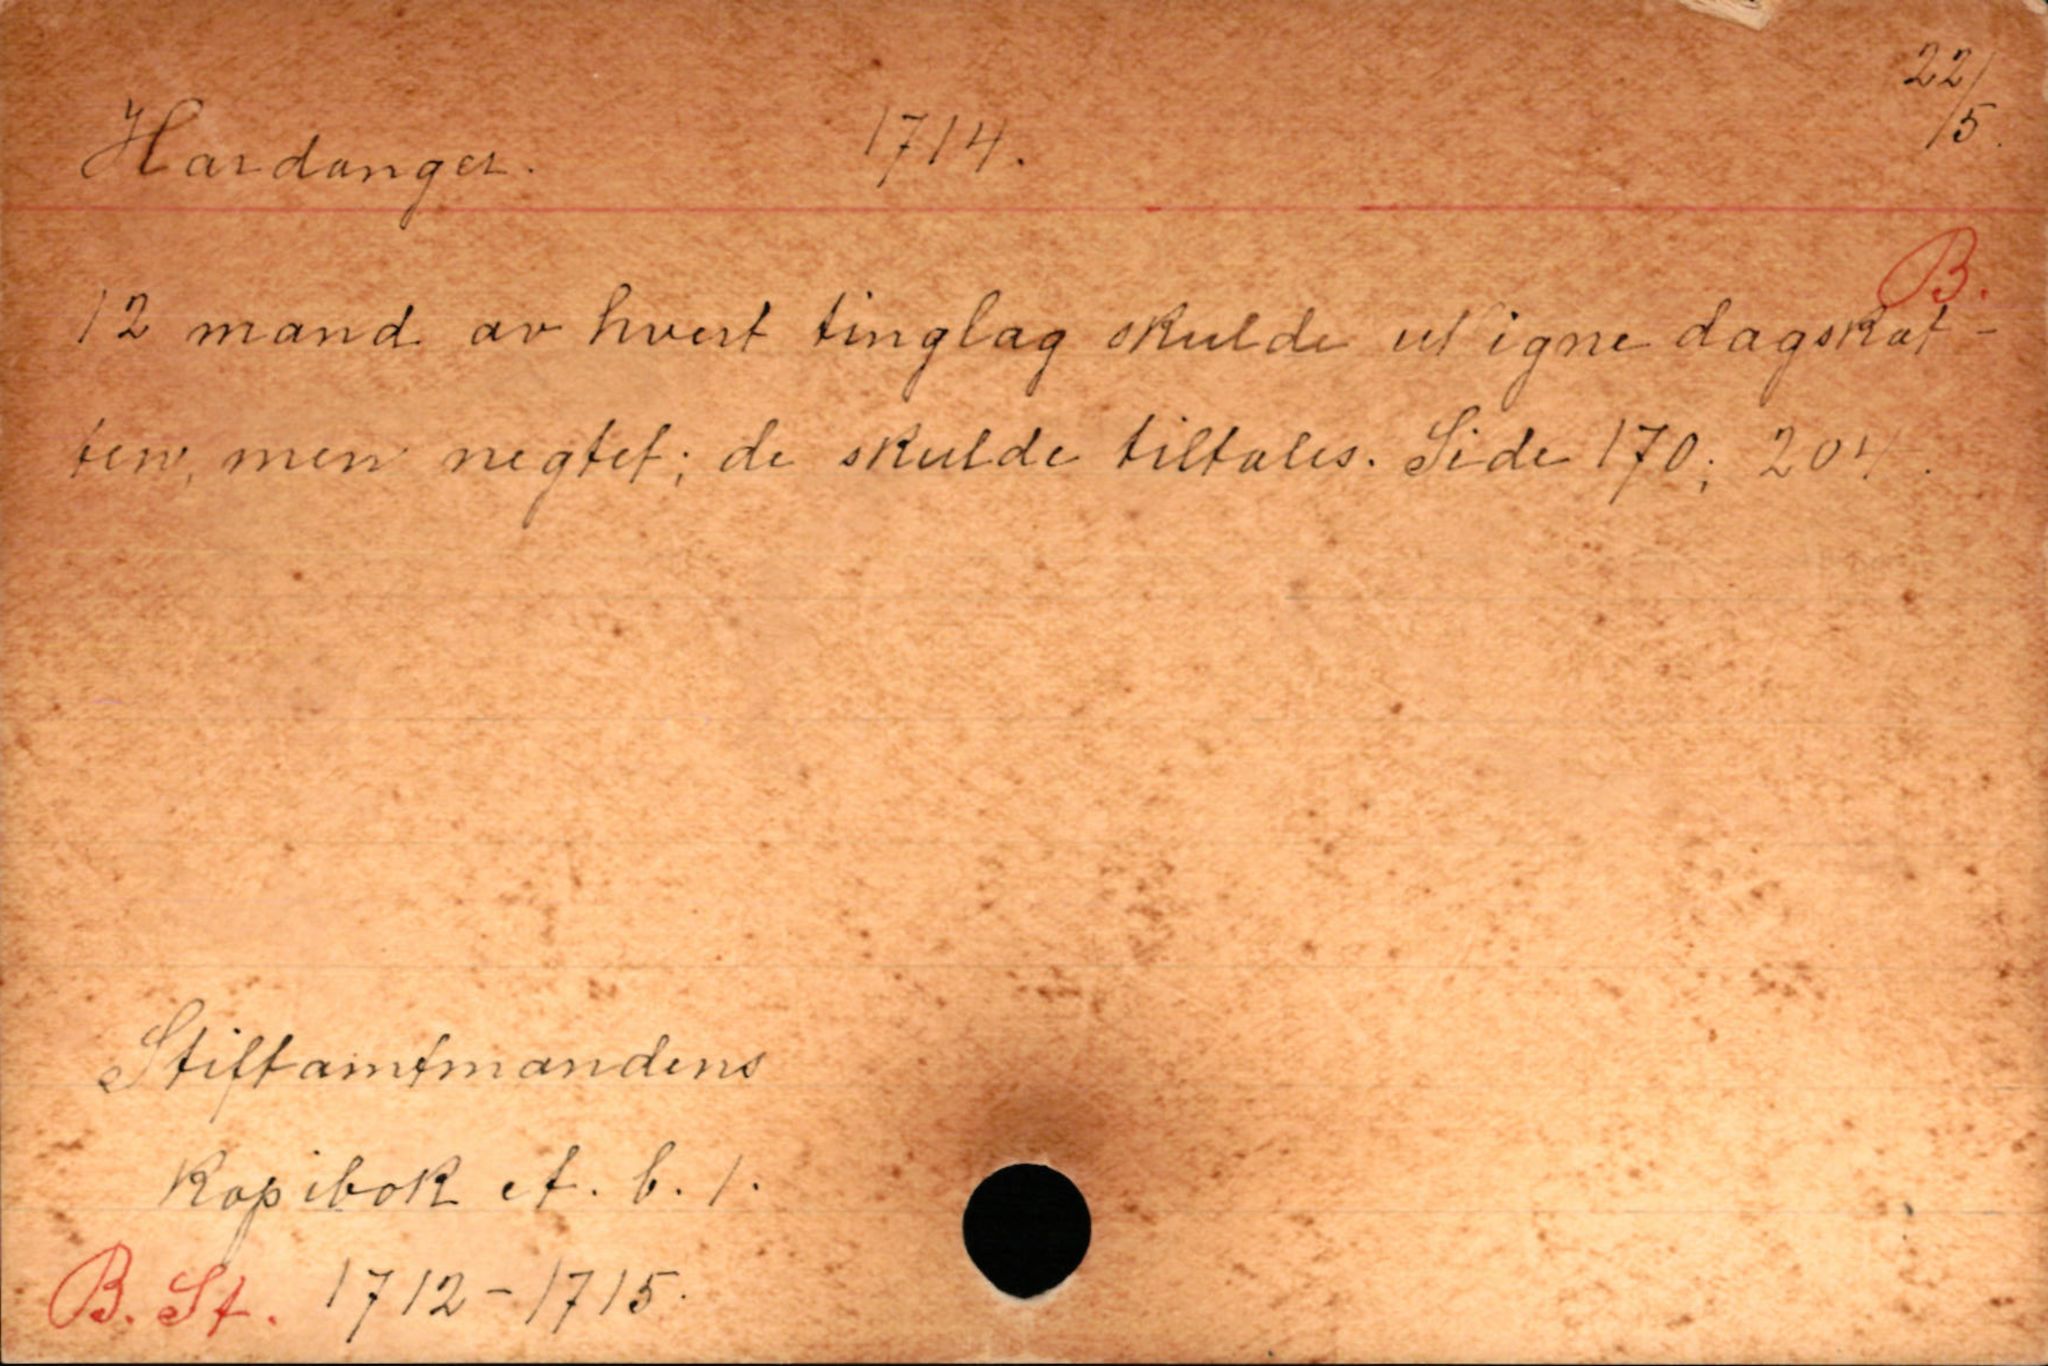 22/5.
Hardanger. 1714.
B.
12 mand av hvert tinglag skulde utligne dagskat-
ten, men negtet; de skulde tiltales. Side 170; 204.
Stiftamtmandens
Kopibok et. b. 1.
B. St. 1712-1715.